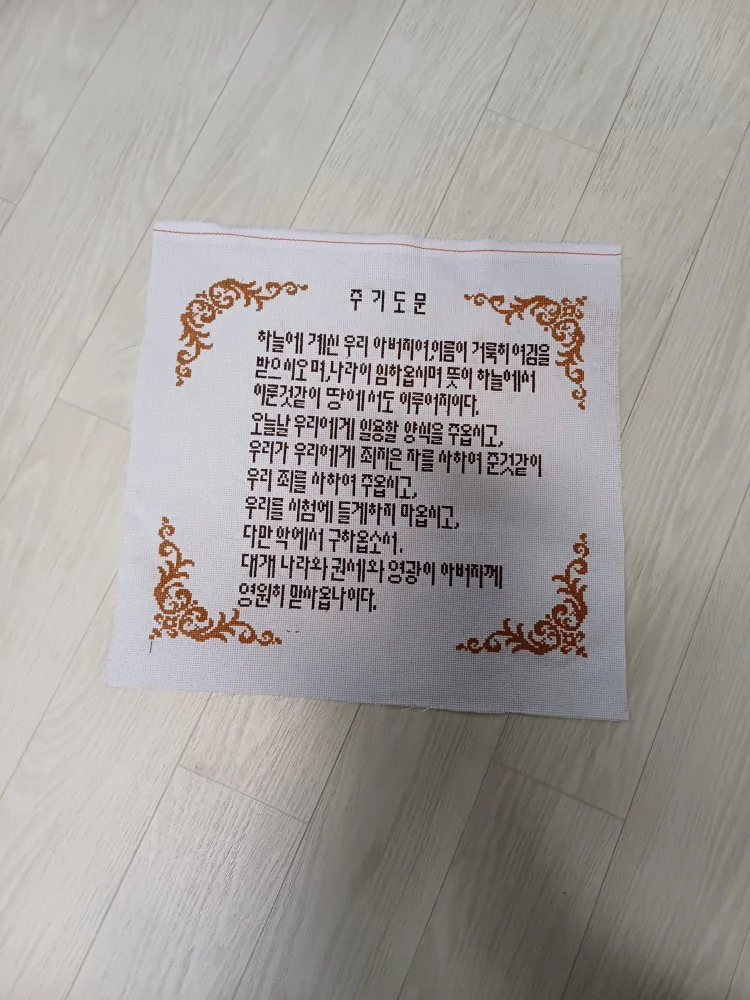 주기도문
하늘에 계신 우리 아버지여,이름이 거룩히 여김을
받으시오며,나라이 임하옵시며 뜻이 하늘에서
이룬것같이 땅에서도 이루어지이다.
오늘날 우리에게 일용할 양식을 주옵시고,
우리가 우리에게 죄지은 자를 사하여 준것같이
우리 죄를 사하여 주옵시고,
우리를 시험에 들게하지 마옵시고,
다만 악에서 구하옵소서.
대개 나라와 권세와 영광이 아버지께
영원히 맏사옵나이다.